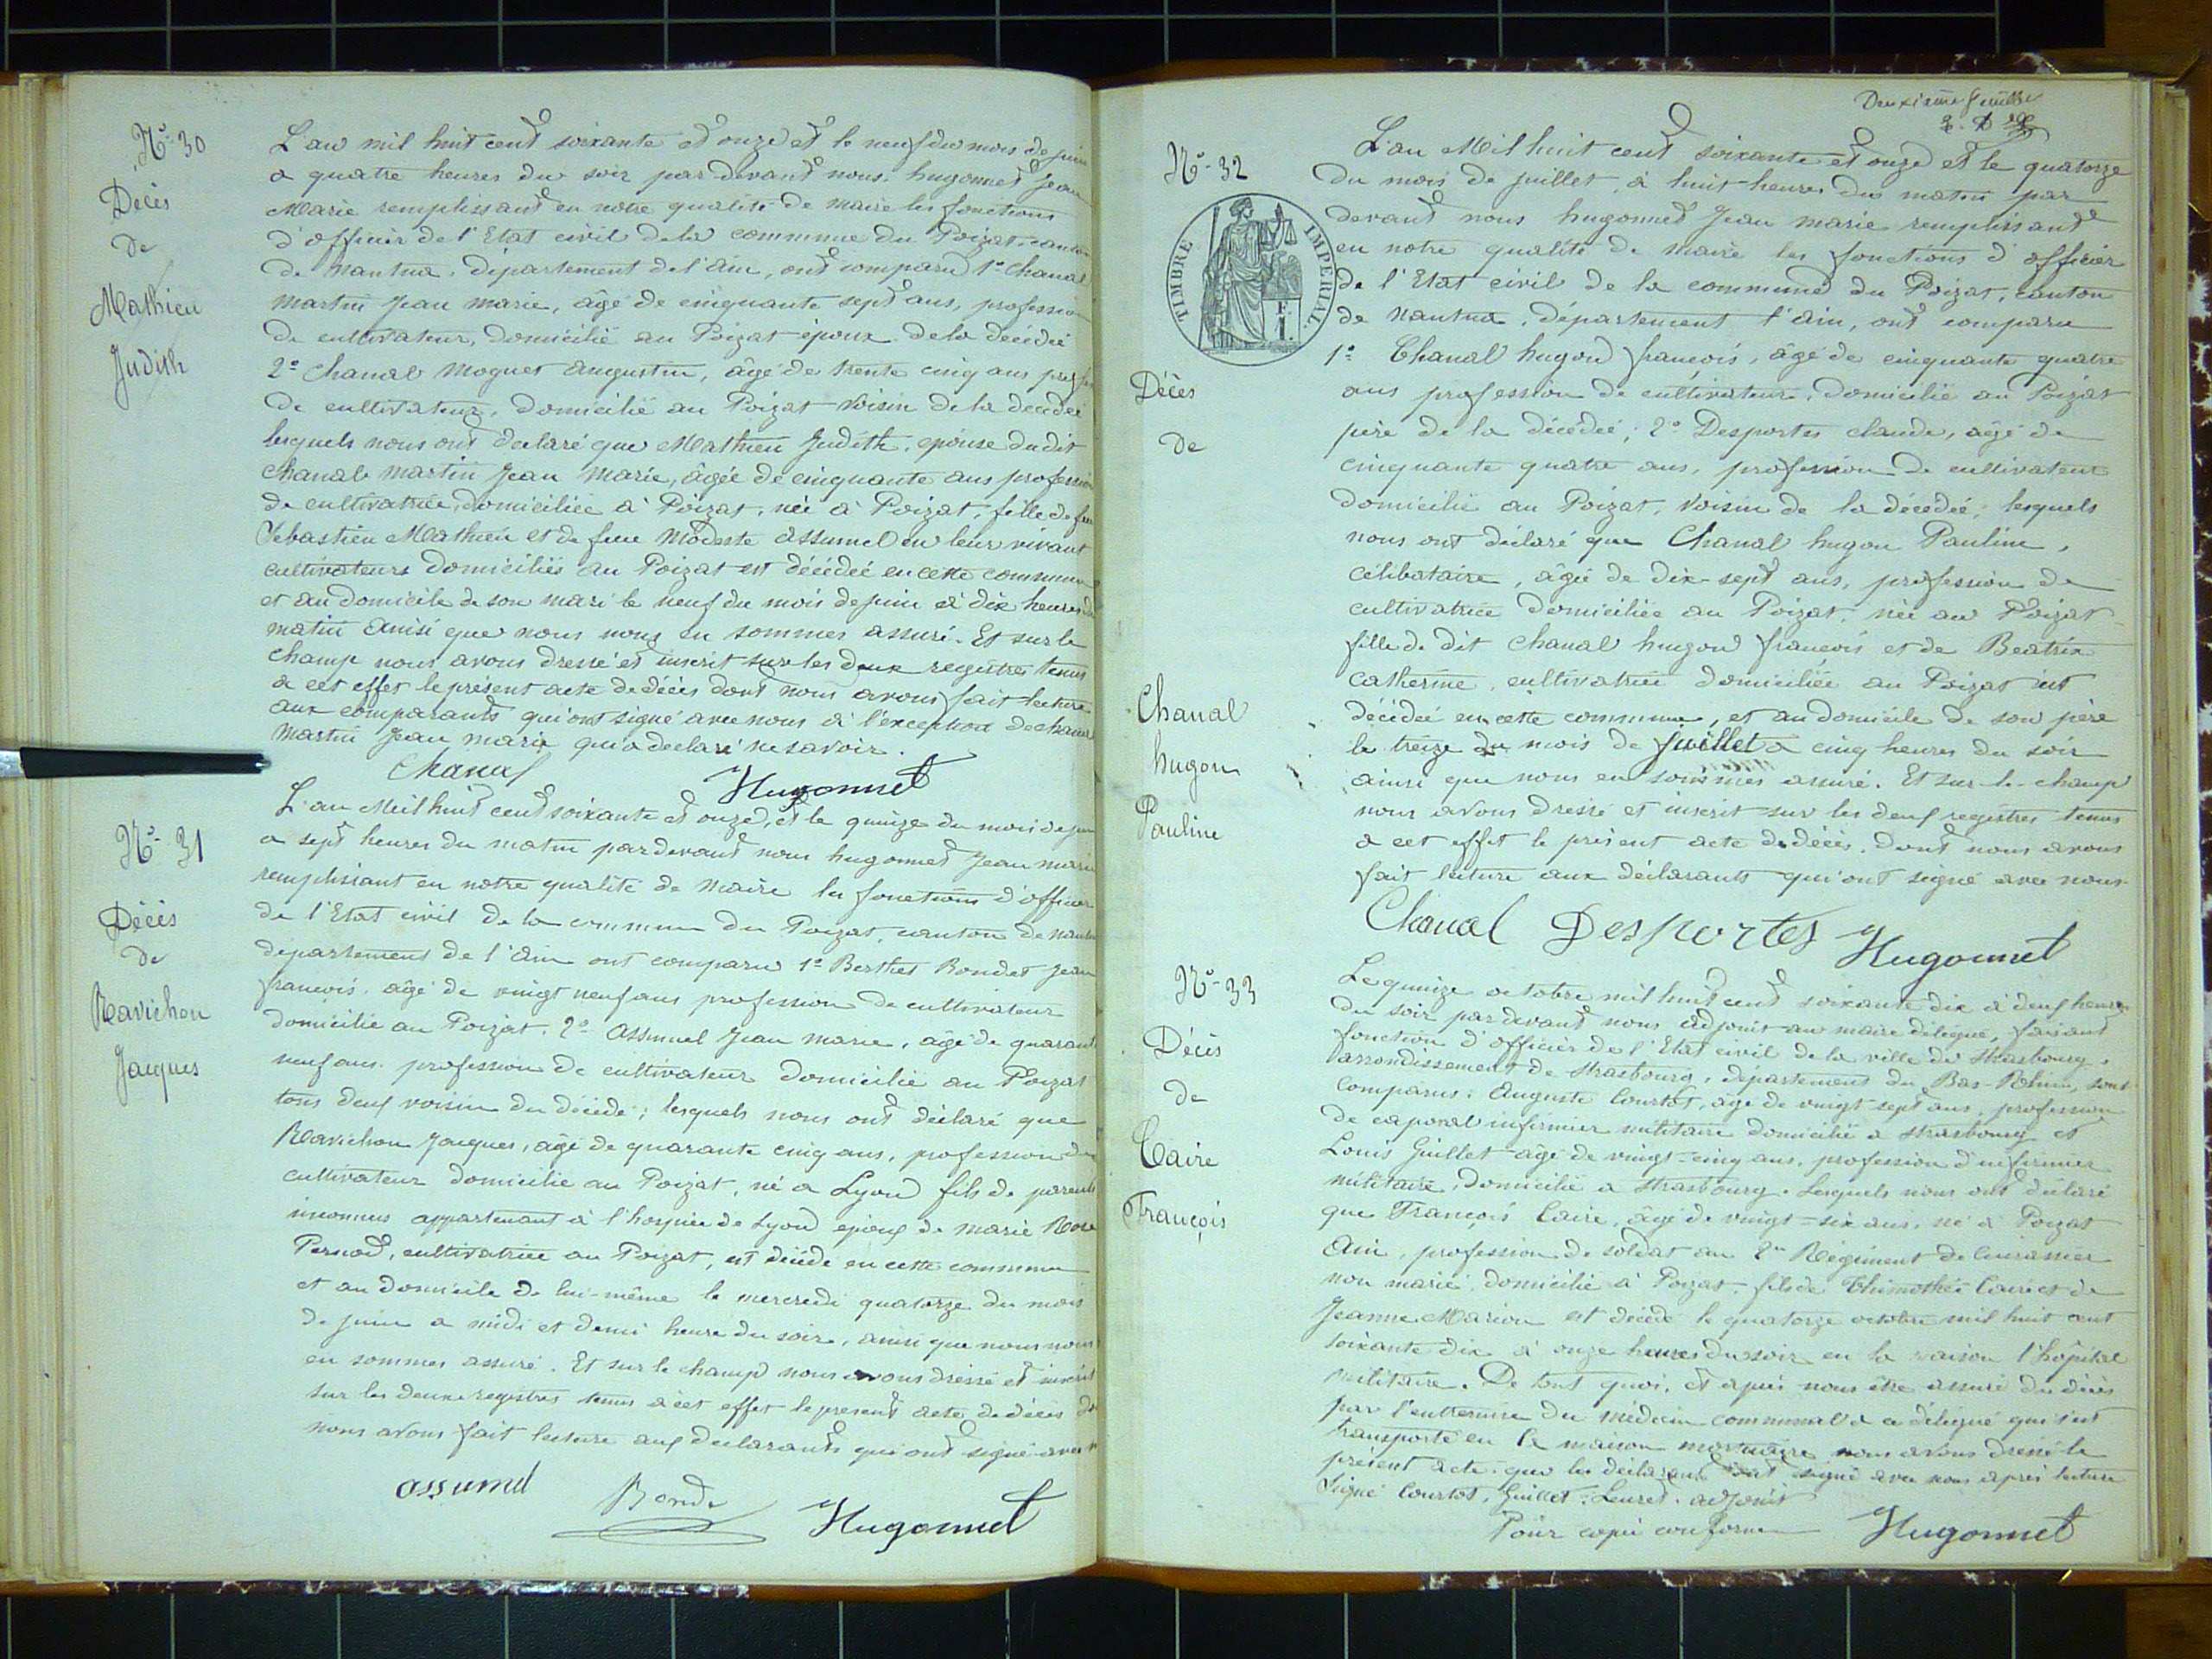 N° 30
Décès
de
Mathieu
Judith
L'an mil huit cent soixante et onze et le neuf du mois de juin
a quatre heures du soir par devant nous hugonnet Jean
Marie remplissant en notre qualité de maire les fonctions
d'officier de l'Etat civil de la commune du Poizat, canton
de Nantua, département de l'ain, ont comparu 1° Chanal
Martin Jean marie, âgé de cinquante sept ans, profession
de cultivateur, domicilié au Poizat époux de la décédée
2° Chanal Moguet Augustin, âgé de trente cinq ans
de cultivateur, domicilié au Poizat voisin de la décédée
lesquels nous ont declaré que Mathieu Judith, épouse dudit
Chanal Martin Jean Marie, âgée de cinquante ans profession
de cultivatrice, domiciliée à Poizat, née à Poizat, fille de feu
Sebastien Mathieu et de feue Modeste Assumel en leur vivant
cultivateurs domiciliés au Poizat est décédée en cette commune
et au domicile de son mari le neuf du mois de juin à dix heures du
matin ainsi que nous nous en sommes assuré. Et sur le
champ nous avons dressé et inscrit sur les deux registres tenus
a cet effet le présent acte de décès dont nous avons fait lecture
aux comparants qui ont signé avec nous à l'exception de chanal
Martin Jean marie qui a declaré ne savoir.
Chanal Hugonnet
N° 31
Décès
de
Ravichon
Jacques
L'an Mil huit cent soixante et onze, et le quinze du mois de juin
a sept heures du matin par devant nous hugonnet Jean marie
remplissant en notre qualité de Maire les fonctions d'officier
de l'Etat civil de la commune du Poizat, canton de Nantua
département de l'Ain ont comparu 1° Berthet Bondet Jean
francois, âgé de vingt neuf ans profession de cultivateur
domicilié au Poizat. 2° Assumel Jean Marie, âgé de quarante
neuf ans, profession de cultivateur domicilié au Poizat
tous deux voisin du décédé; lesquels nous ont déclaré que
Ravichon Jacques, âgé de quarante cinq ans, profession de
cultivateur domicilié au Poizat, né a Lyon fils de parents
inconnus appartenant à l'hospice de Lyon époux de Marie Rose
Pernod, cultivatrice au Poizat, est décédé en cette commune
et au domicile de lui-même le mercredi quatorze du mois
de juin a midi et demi heure du soir, ainsi que nous nous
en sommes assuré. Et sur le champ nous avons dressé et inscrit
sur les deux registres tenus à cet effet le present acte de décès
nous avons fait lecture aux declarants qui ont signé avec
assumel Bonde Hugonnet
Deuxième feuille
N° 32
TIMBRE IMPERIAL
Décès
de
Chanal
hugon
Pauline
L'an Mil huit cent soixante et onze et le quatorze
du mois de juillet, à huit heures du matin par
devant nous hugonnet Jean Marie remplissant
en notre qualité de maire les fonctions d'officier
de l'Etat civil de la commune du Poizat, canton
de Nantua, département l'ain, ont comparu
1° Chanal hugon françois, âgé de cinquante quatre
ans profession de cultivateur, domicilié au Poizat
père de la décédée; 2° Desportes claude, âgé de
cinquante quatre ans, profession de cultivateur
domicilié au Poizat, voisin de la décédée; lesquels
nous ont déclaré que Chanal hugon Pauline,
célibataire, âgée de dix-sept ans, profession de
cultivatrice domiciliée au Poizat, née au Poizat
fille de dit chanal hugon françois et de Beatrix
Catherine, cultivatrice domiciliée au Poizat est
décédée en cette commune, et au domicile de son père
le treize du mois de juillet a cinq heures du soir
ainsi que nous en sommes assuré. Et sur-le-champ
nous avons dressé et inscrit sur les deux registres tenus
a cet effet le présent acte de décès. Dont nous avons
fait lecture aux déclarants qui ont signé avec nous
Chanal Desportes Hugonnet
N° 33
Décès
de
Caire
François
Le quinze octobre mil huit cent soixante dix à deux heures
du soir par devant nous adjoint au maire délégué, faisant
fonction d'officier de l'Etat civil de la ville de Strasbourg,
arrondissement de Strasbourg, département du Bas-Rhin, sont
comparus: Auguste Courtot, âgé de vingt sept ans, profession
de caporal infirmier militaire domicilié a Strasbourg et
Louis Guillet âgé de vingt-cinq ans, profession d'infirmier
militaire, domicilié a Strasbourg. Lesquels nous ont déclaré
que François Caire, âgé de vingt-six ans, né à Poizat
Ain, profession de soldat au 2me Régiment de Cuirassier
non marié, domicilié à Poizat, fils de Thimothée Caire et de
Jeanne Marion est décédé le quatorze octobre mil huit cent
soixante dix à onze heures du soir en la maison l'hôpital
militaire. De tout quoi, et après nous être assuré du décès
par l'entremise du médecin communal a ce délégué qui s'est
transporté en la maison mortuaire nous avons dressé le
présent acte que les déclarants ont signé avec nous après lecture
Signé Courtot, Guillet, Leuret, adjoint
Pour copie conforme Hugonnet